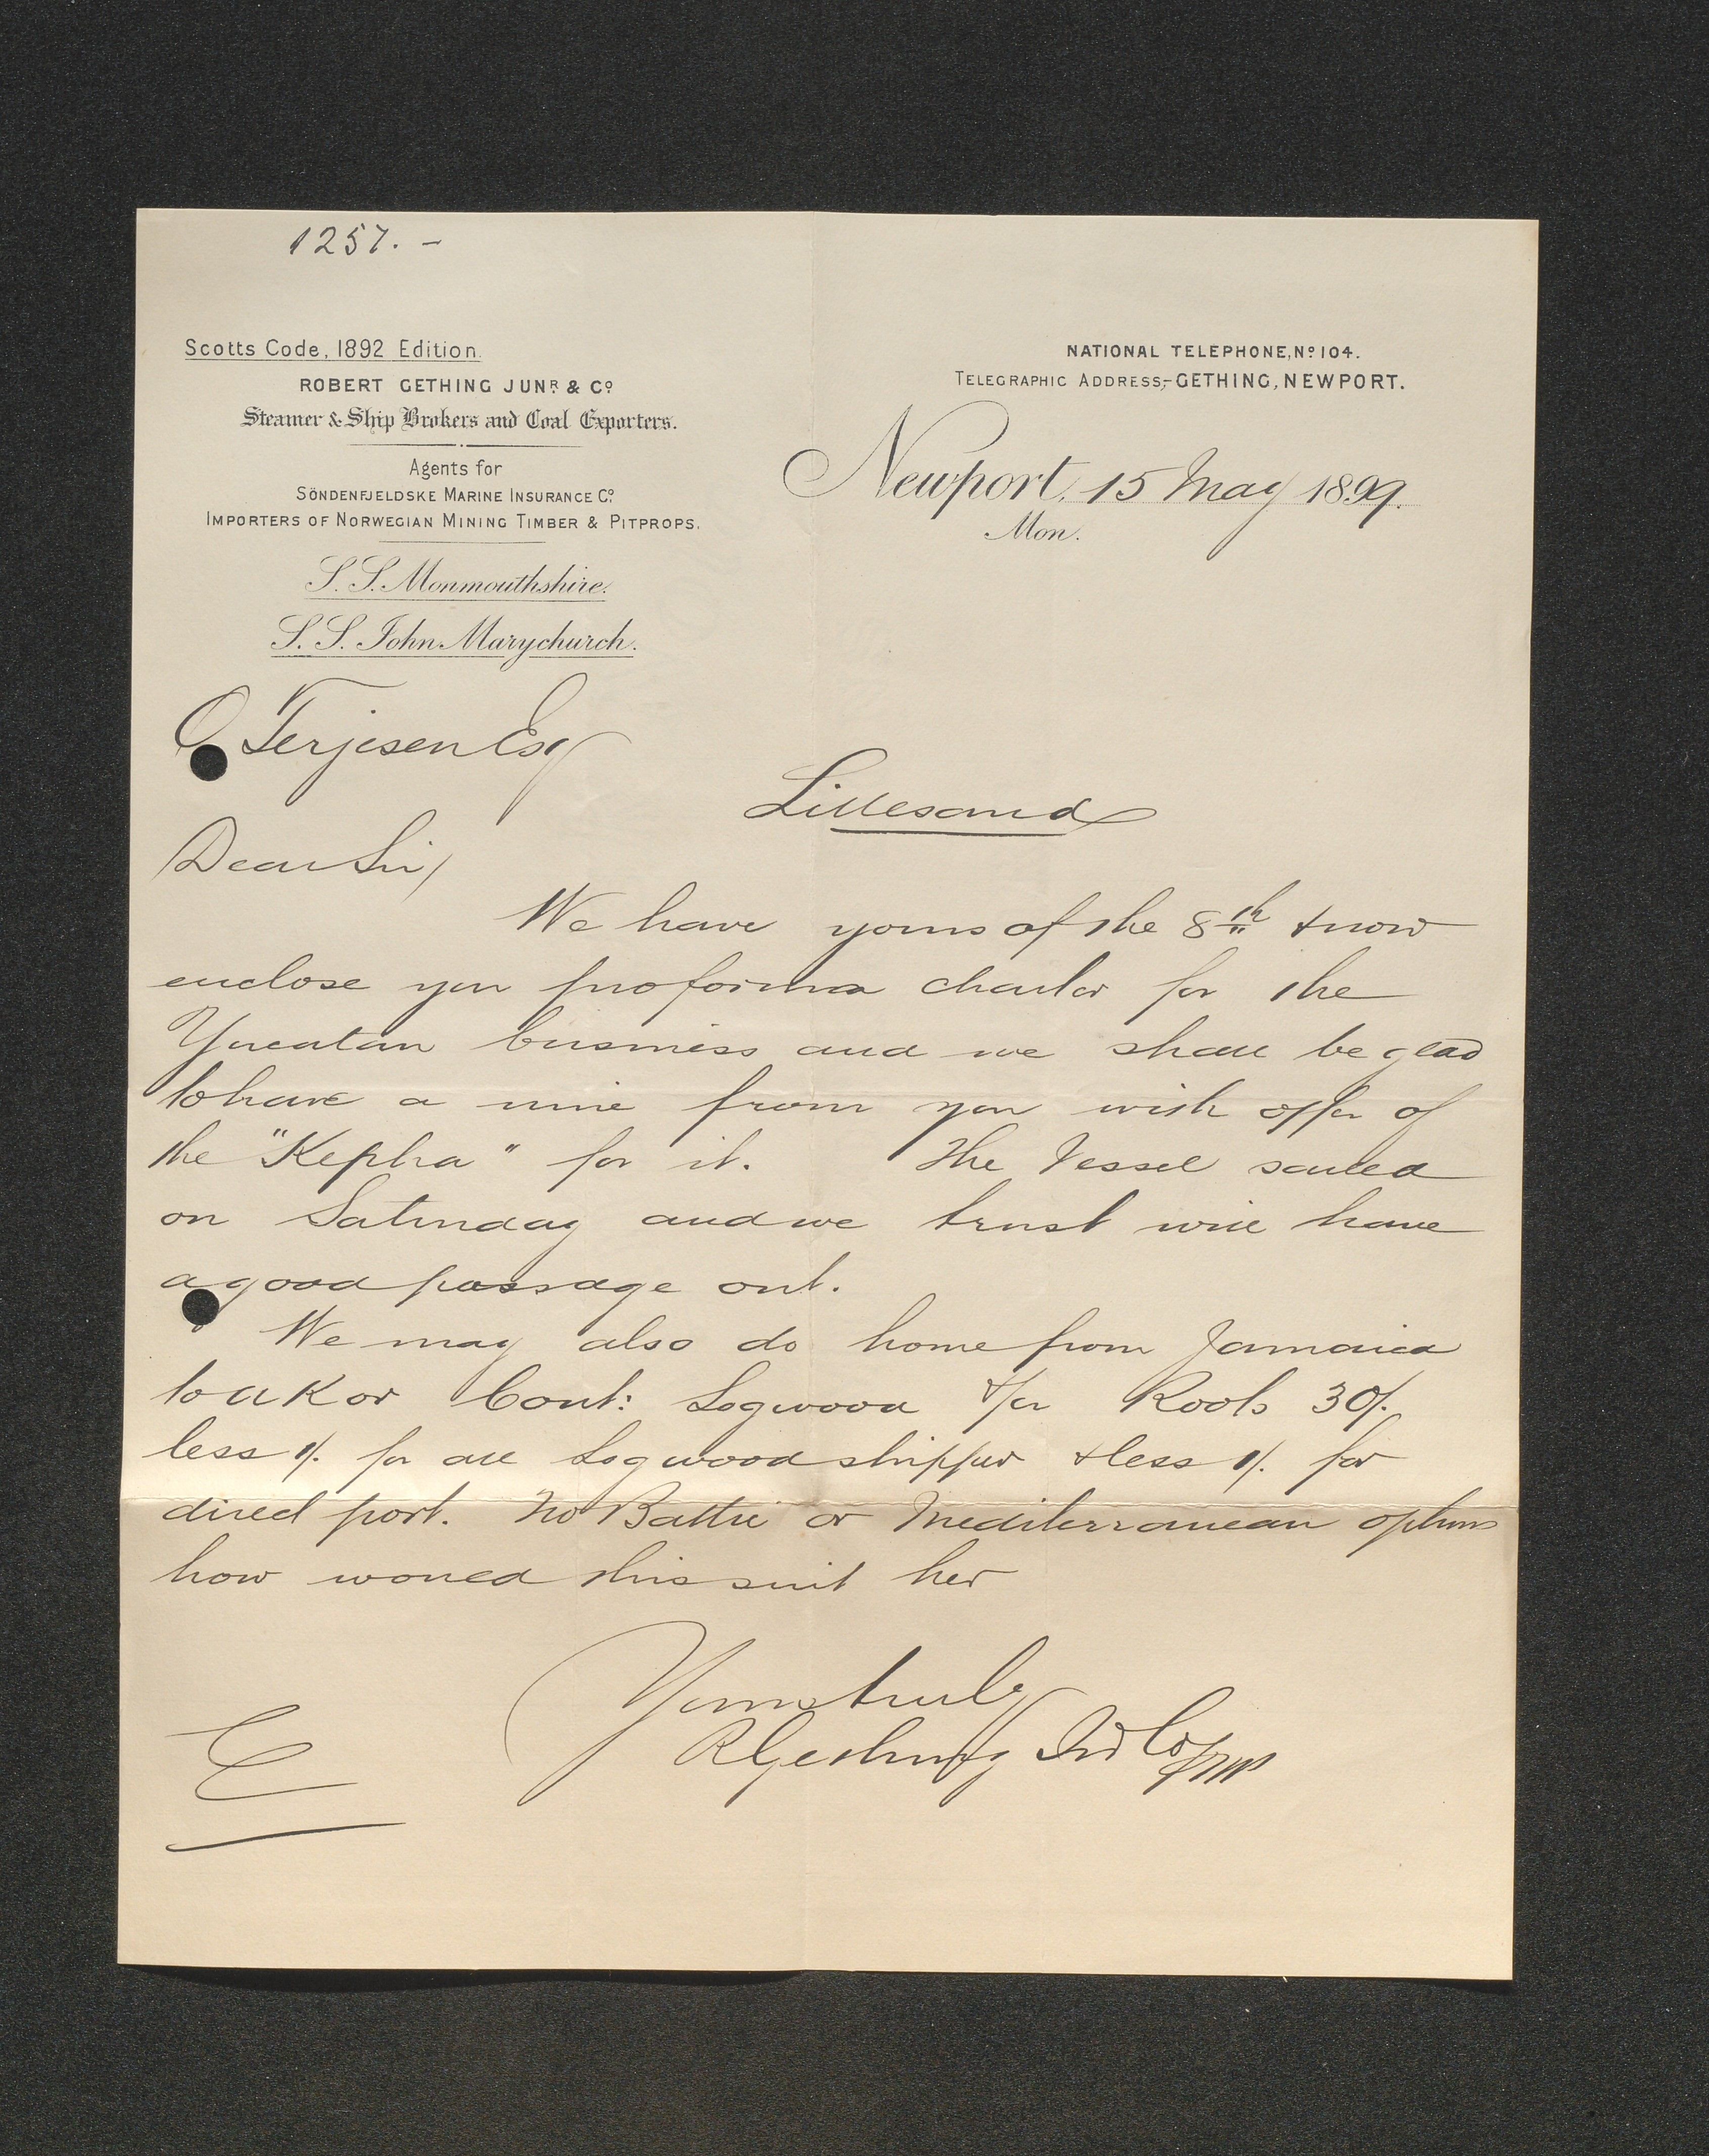 1257. -
Scotts Code, 1892 Edition.
ROBERT GETHING JUNR & Co
Steamer & Ship Brokers and Coal Exporters.
Agents for
SÖNDENFJELDSKE MARINE INSURANCE Co
IMPORTERS OF NORWEGIAN MINING TIMBER & PITPROPS.
S.S. Monmouthshire.
S.S. John Marychurch.
NATIONAL TELEPHONE, No 104.
TELEGRAPHIC ADDRESS,- GETHING, NEWPORT.
Newport, 15 May 1899.
Mon.
O. Terjesen Esq
Lillesand
Dear Sir/
We have yours of the 8th & now
enclose you proforma charter for the
Yucatan business and we shall be glad
to have a wire from you with offer of
the "Kepha" for it. The Vessel sailed
on Saturday and we trust will have
a good passage out.
We may also do home from Jamaica
to UK or Cont: Logwood &/or Roots 30/.
less 1/. for all Logwood shipped & less 1/. for
direct port. No Baltic or Mediterranean options
how would this suit her
Yours truly
R Gething Jnr & Co